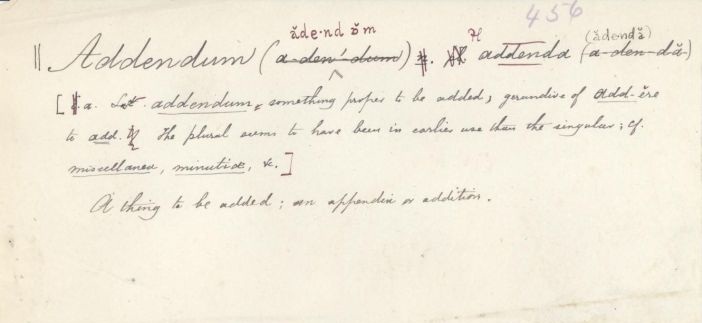 456
ădendŏm Pl (ădendă)
|| Addendum (a-den'-dum) addenda (a-den-dă)
[a. Lat. addendum, something proper to be added; gerundive of add-ĕre
to add. The plural seems to have been in earlier use than the singular; cf.
miscellanea, minutiæ, &c.]
A thing to be added; an appendix or addition.